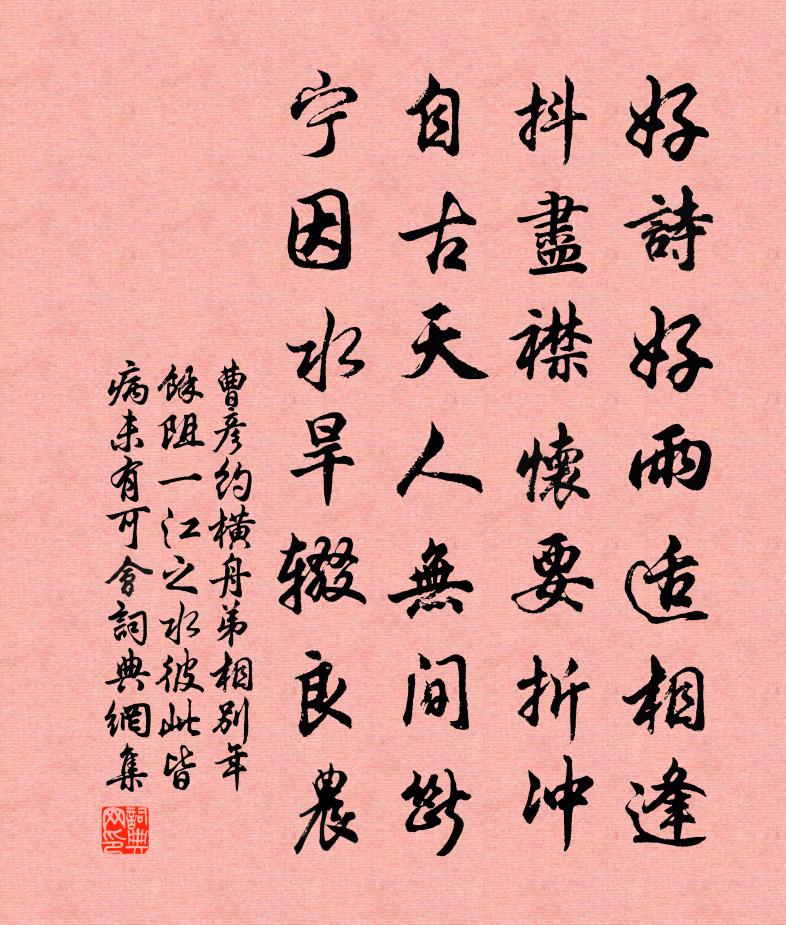 好詩好雨适相逢
抖盡襟懷要折冲
自古天人無间斷
宁因水旱辍良農
曹彦约横舟弟相别年
餘阻一江之水彼此皆
病未有可會詞典網集
詞典网印